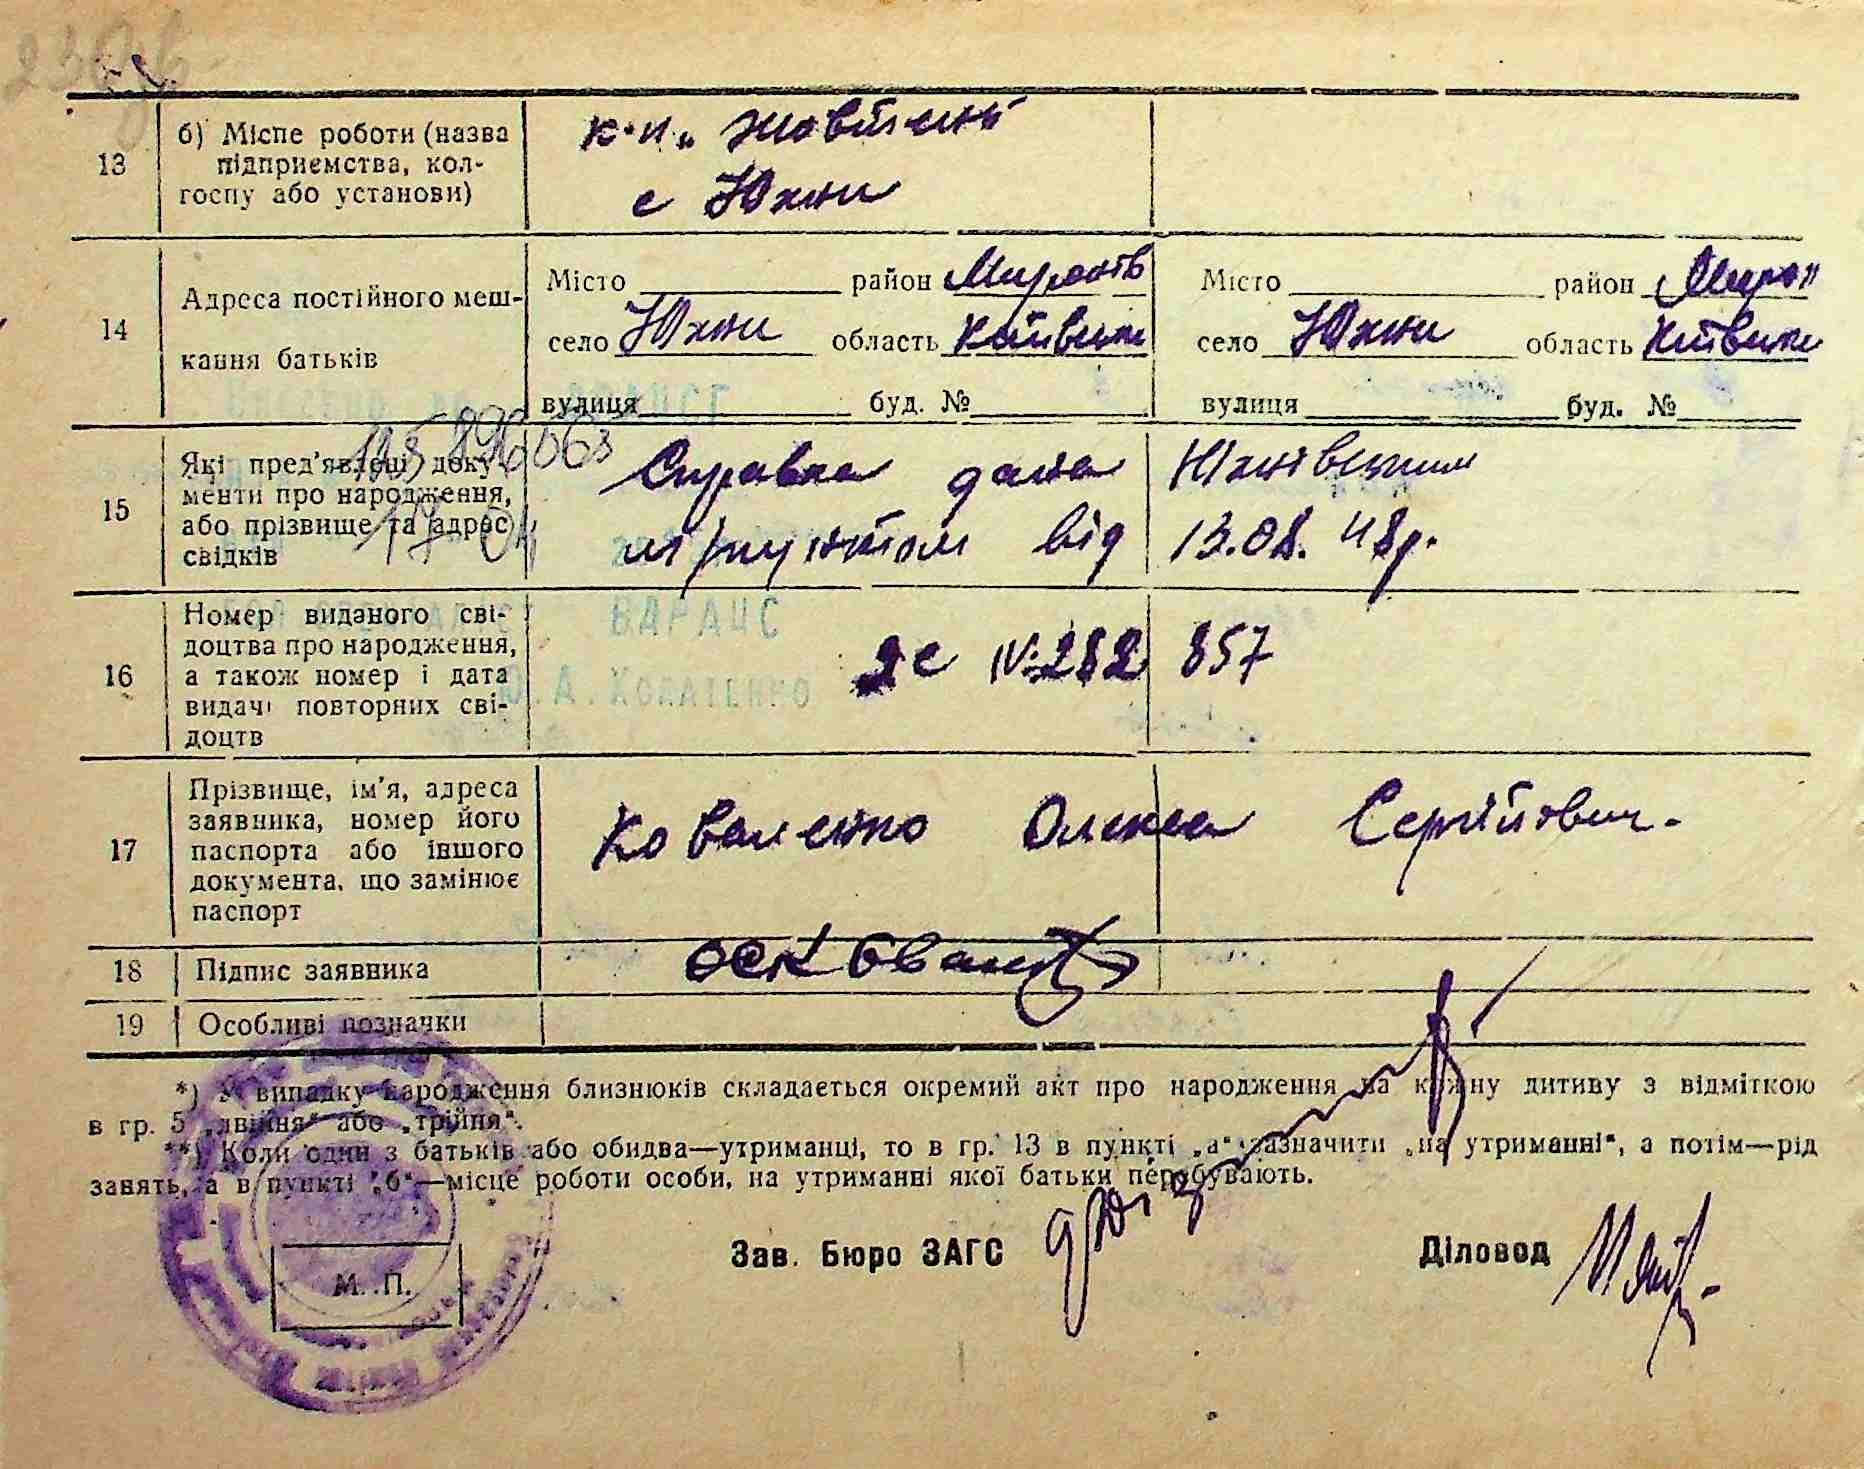 13
б) Місце роботи (назва
підприємства, кол-
госпу або установи)
к-п „Жовтень"
с Юхни
14
Адреса постійного меш-
кання батьків
Місто район Миронів
село Юхни область Київська
вулиця буд. №
Місто район Мирон
село Юхни область Київська
вулиця буд. №
15
Які пред'явлені доку-
менти про народження,
або прізвище та адрес
свідків
Справка дана Юхнівським
м/пунктом від 13.08.48р.
16
Номер виданого сві-
доцтва про народження,
а також номер і дата
видачі повторних сві-
доцтв
№ 282 857
17
Прізвище, ім'я, адреса
заявника, номер його
паспорта або іншого
документа, що замінює
паспорт
Коваленко Олекса Сергійович.
18
Підпис заявника
19
Особливі позначки
*) У випадку народження близнюків складається окремий акт про народження на кожну дитину з відміткою
в гр. 5 „двійня" або „трійня".
**) Коли один з батьків або обидва—утриманці, то в гр. 13 в пункті „а" зазначити „на утриманні", а потім—рід
занять, а в пункті „б"—місце роботи особи, на утриманні якої батьки перебувають.
Зав. Бюро ЗАГС
Діловод
М. П.